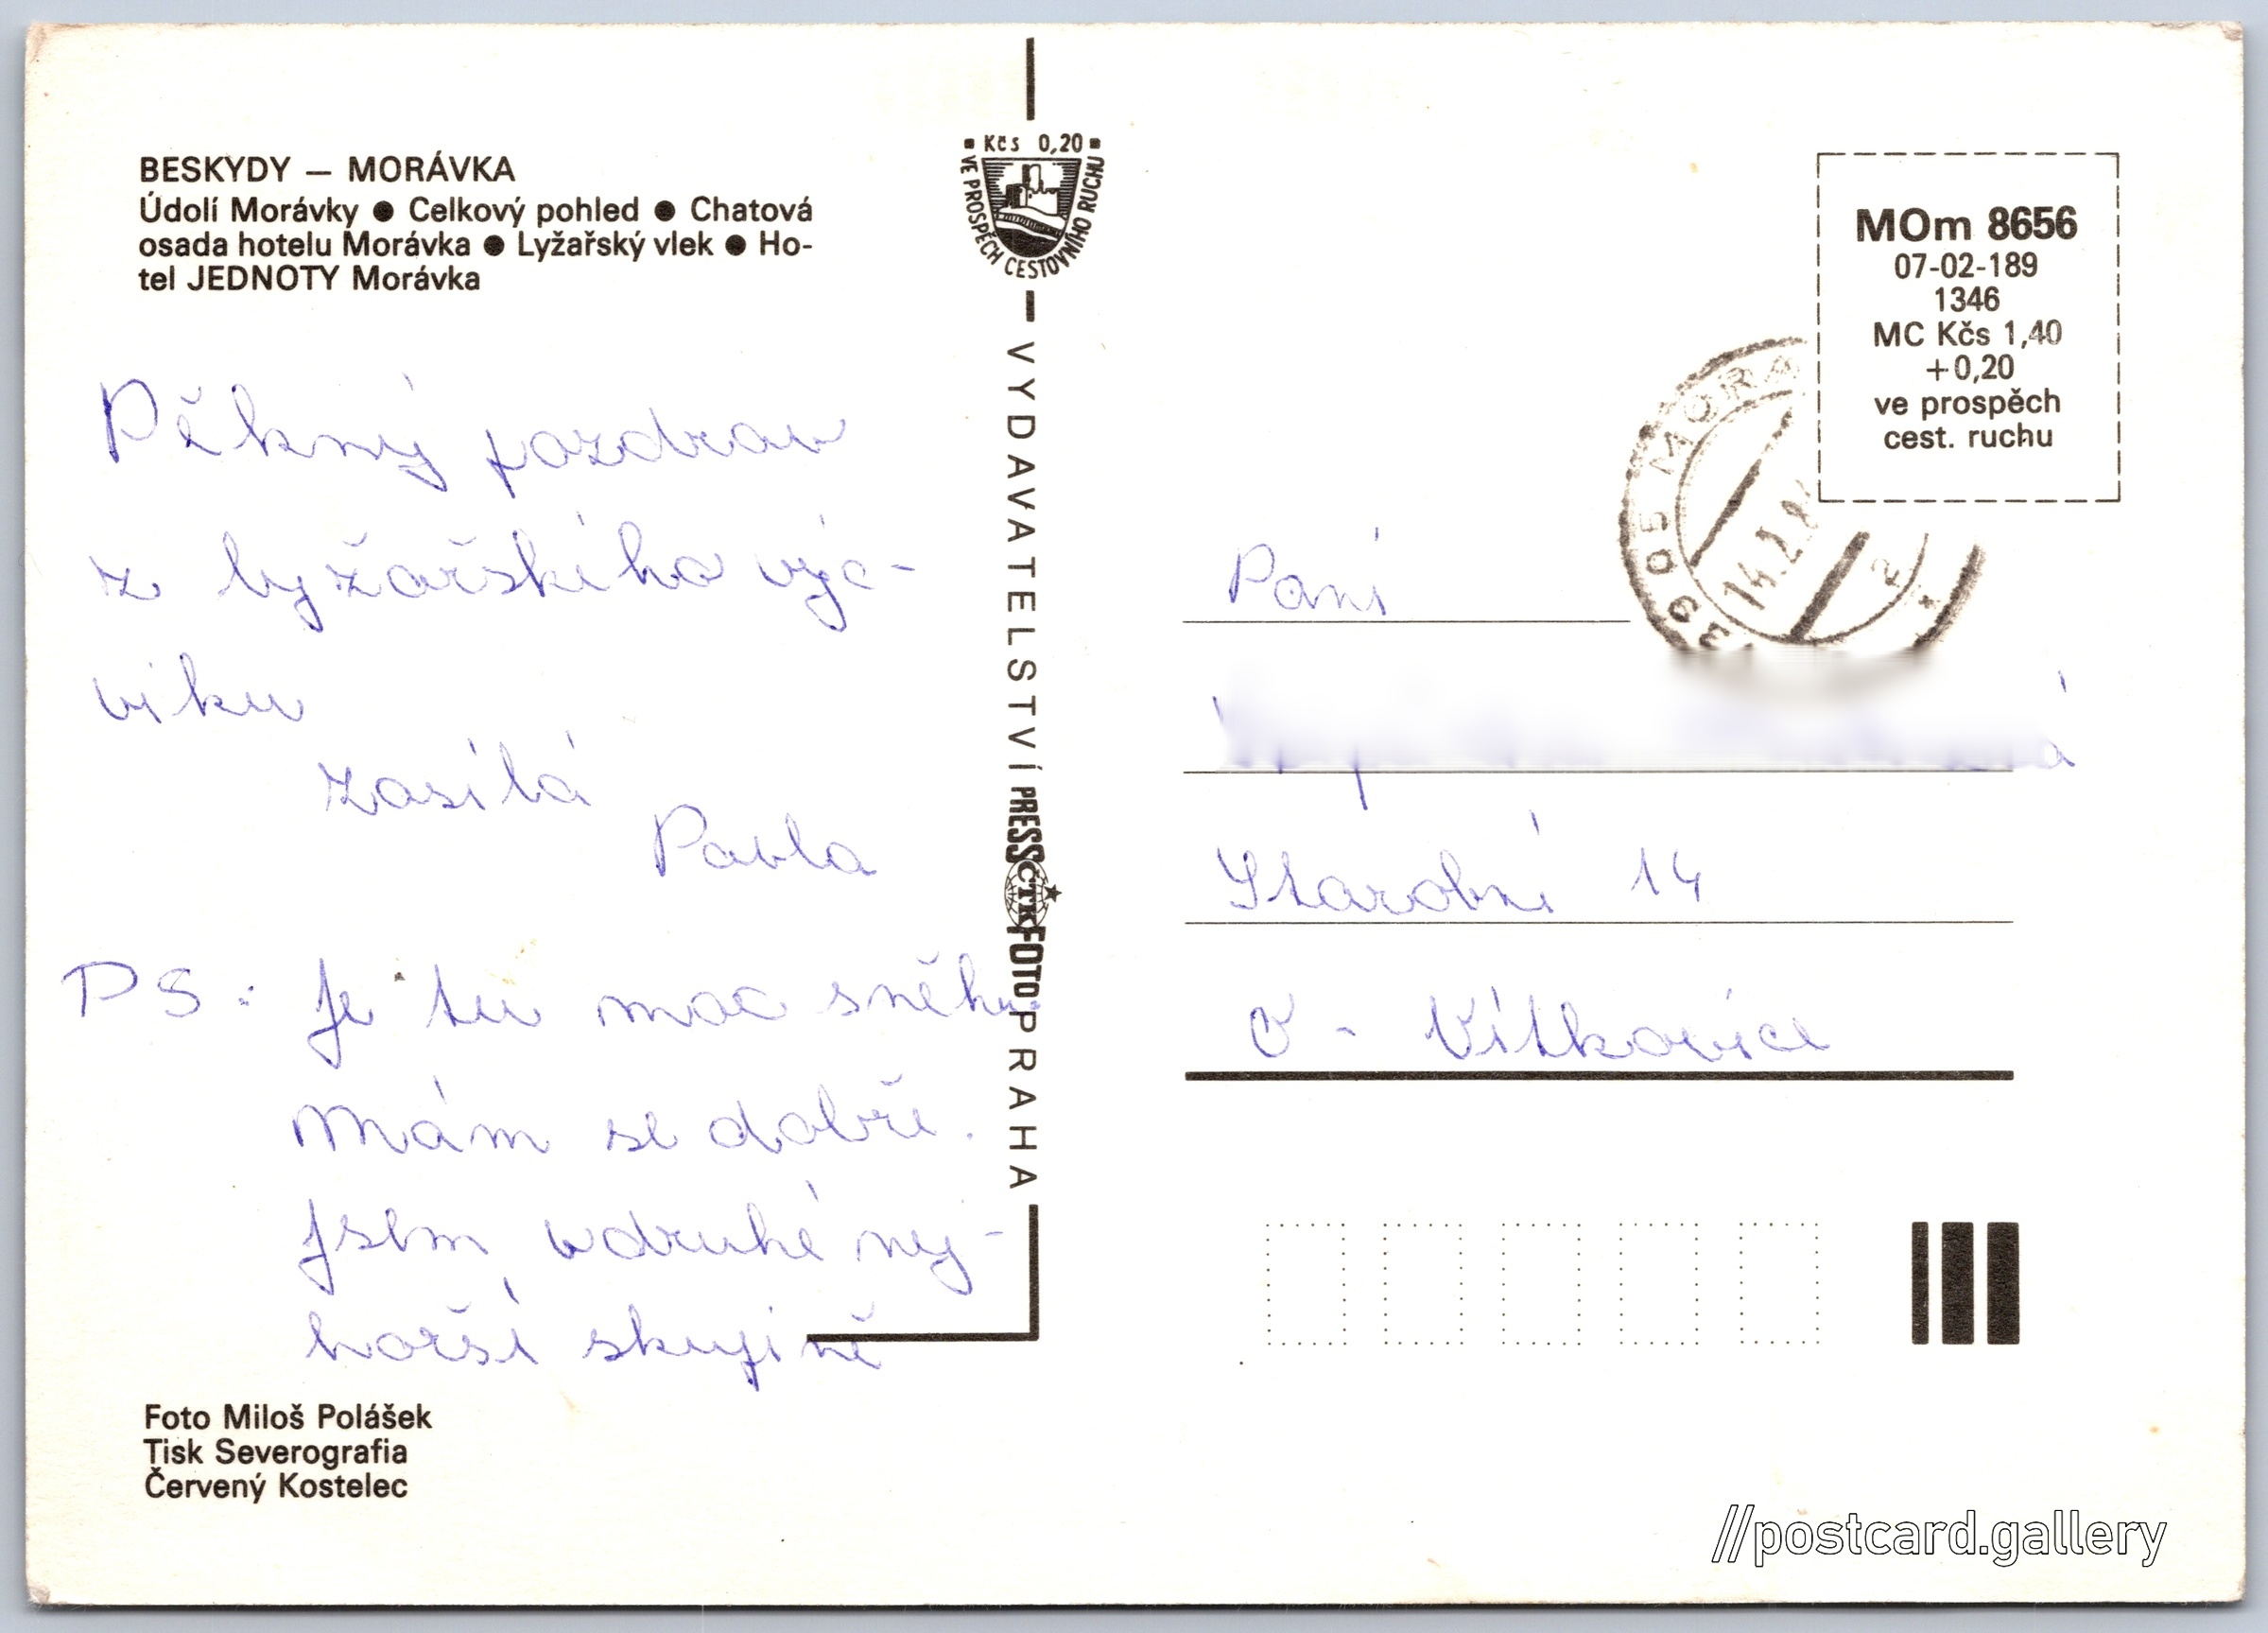 BESKYDY — MORÁVKA
Údolí Morávky ● Celkový pohled ● Chatová
osada hotelu Morávka ● Lyžařský vlek ● Ho-
tel JEDNOTY Morávka
Pěkný pozdrav
z lyžařského výc-
viku
zasílá
Pavla
PS: Je tu moc sněhu
Mám se dobře.
Jsem v druhé nej-
horší skupině
Foto Miloš Polášek
Tisk Severografia
Červený Kostelec
Kčs 0,20
VE PROSPĚCH CESTOVNÍHO RUCHU
VYDAVATELSTVÍ PRESSFOTO PRAHA
ČTK
MOm 8656
07-02-189
1346
MC Kčs 1,40
+0,20
ve prospěch
cest. ruchu
39 05 MORÁ
14.2.8
Paní
Starobní 14
O - Vítkovice
//postcard.gallery